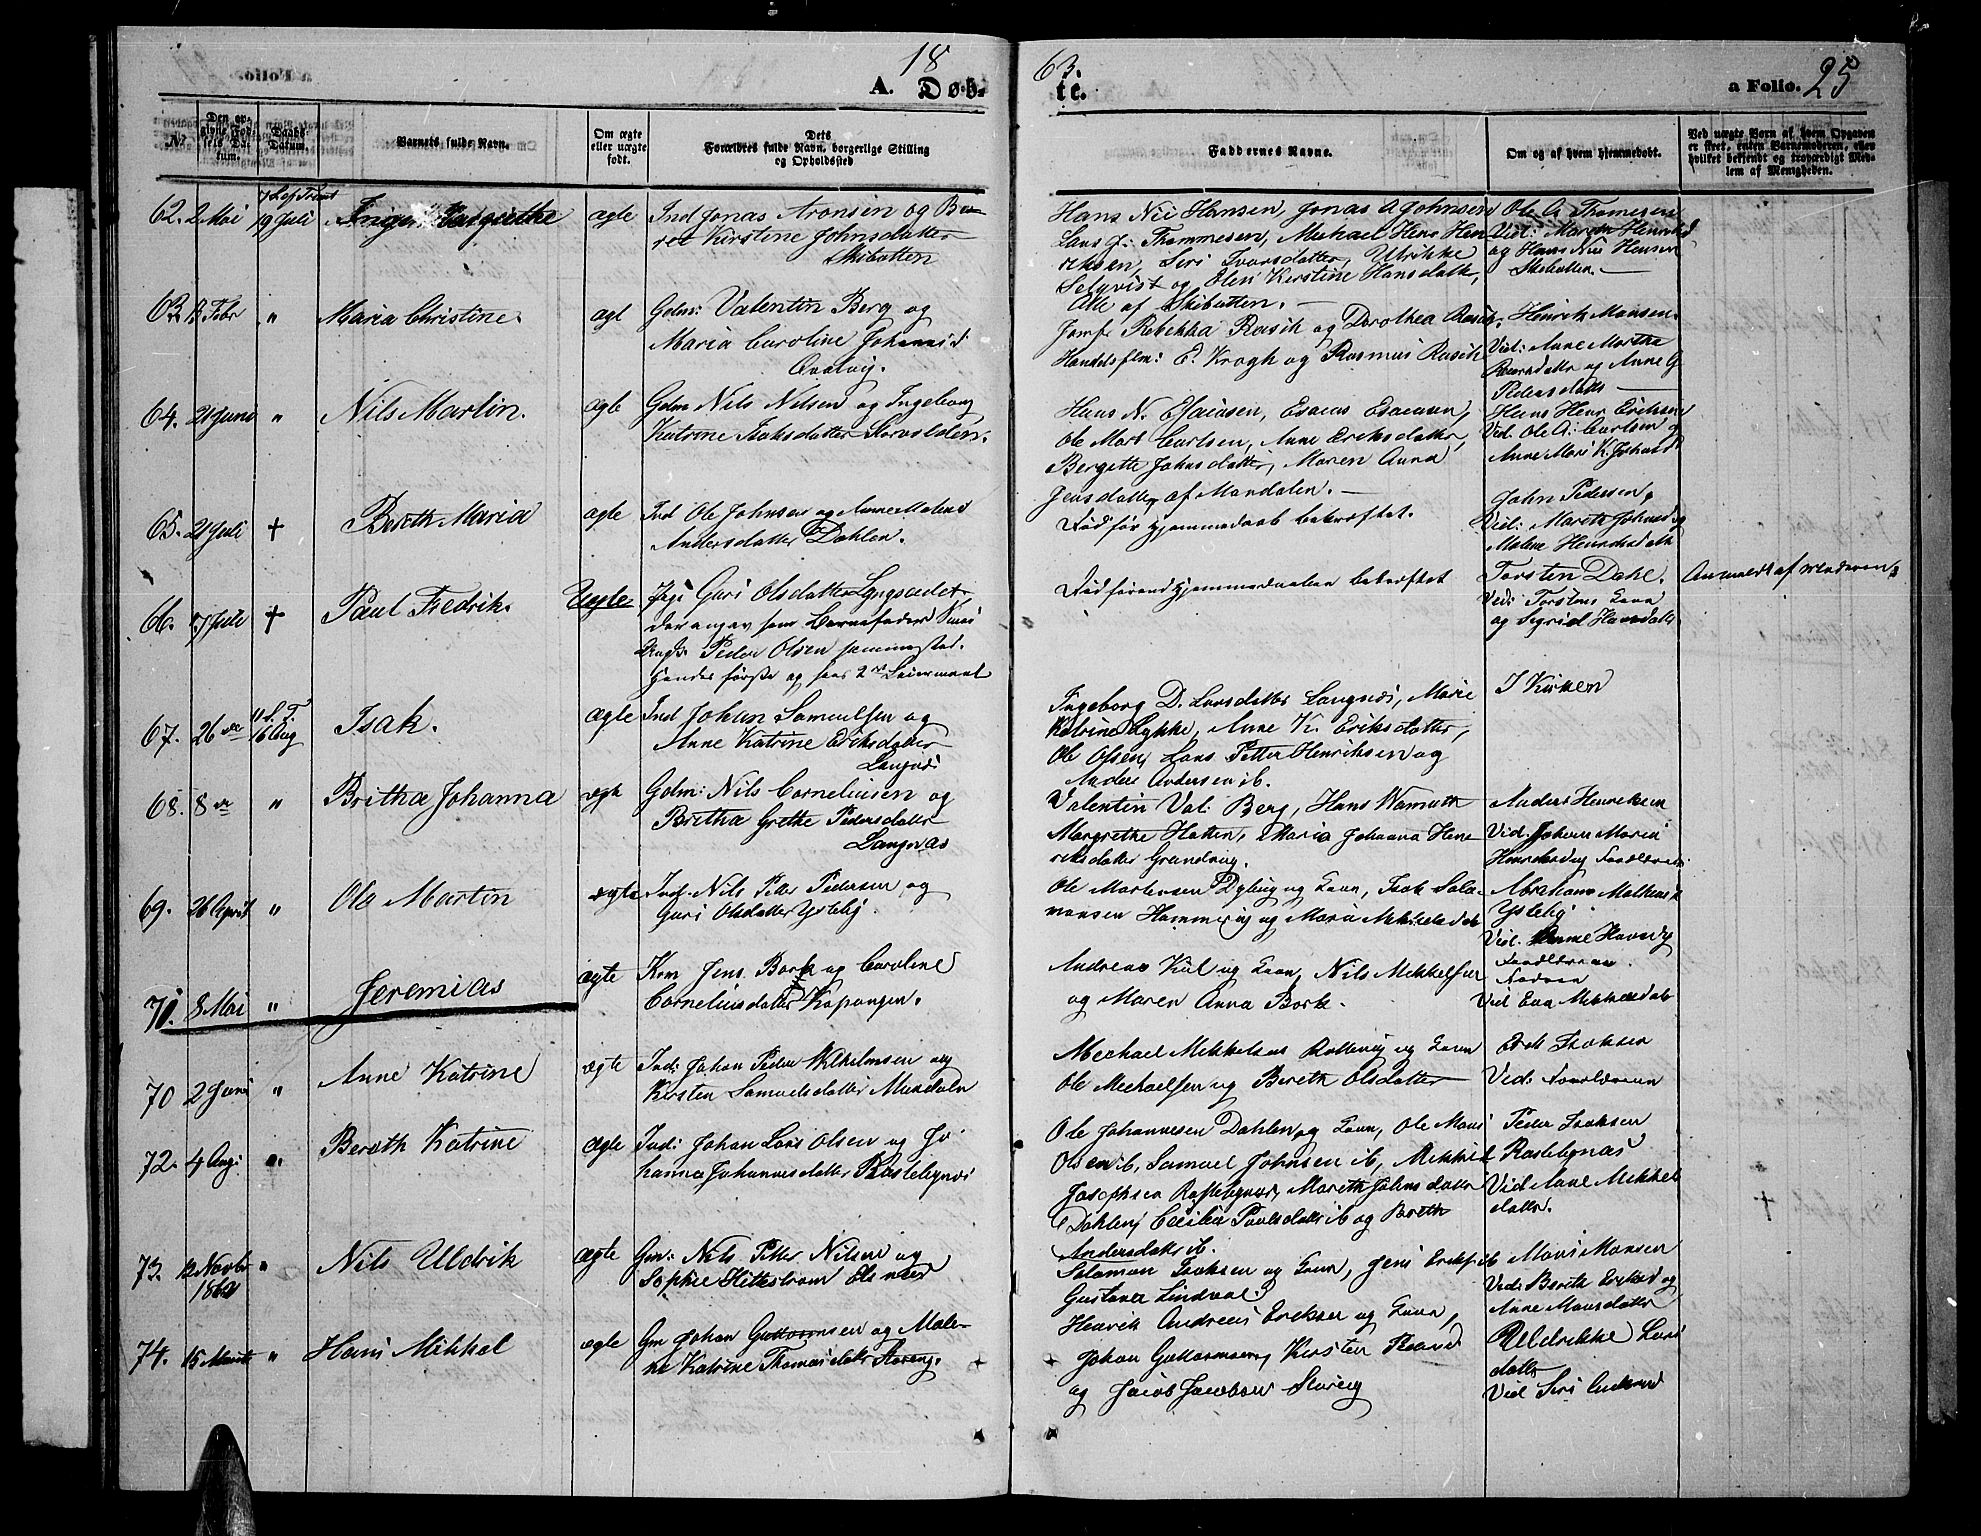 1863.
A. Døbte.
a Folio. 25
No.
Den opgivne Fødsels Datum.
Daabs-Datum.
Barnets fulde Navn.
Om ægte eller uægte født.
Dets Forældres fulde Navn, borgerlige Stilling og Opholdssted
Faddernes Navne.
Om og af hvem hjemmedøbt.
Ved uægte Børn af hvem Opgaven er skeet, enten Barnemoderen, eller hvilket bekjendt og troværdigt Medlem af Menigheden.
62. 2 Mai 7 S. ef. Trint 19 Juli Inger Margrethe ægte Ind Jonas Aronsen og Be-
ret Kirstine Johnsdatter
Skibotten
Hans Nic Hansen, Jonas A Johnsen
Lars J. Thommesen, Michael Hens Hen
riksen, Siri Ivarsdatter, Ulrikke
og Elen Kirstine Hansdatter,
Alle af Skibotten.
Ole A Thomesen
Vid: Marith Henriksd
og Hans Nic Hansen
Skibotten.
63. 13 Febr " Maria Christine. ægt Gdm: Valentin Berg og
Maria Caroline Johannisd
Qvalvig.
Jomfr Rebekka Rasch og Dorothea Rasch.
Handelsflm: E. Krogh og Rasmus Rasch
Henrik Monsen.
Vid: Anne Martha
og Anne G
Pedersdatter
64. 21 Juni " Nils Martin. ægte Gdm Nils Nilsen og Ingeborg
Katrine Isaksdatter Storvolden.
Hans N. Esaiasen, Esaias Esaiasen,
Ole Mort Carlsen, Anne Eriksdatter,
Bergette Johnsdatter, Maren Anna
Jensdatter, af Mandalen.
Hans Henr Eriksen
Vid. Ole A: Carlsen og
Anne Mari K. Johnsd
65. 21 Juli † Bereth Maria ægte Ind Ole Johnsen og Anne Malene
Andersdatter Dahlen.
Død før Hjemmedaab bekræftet.
John Pedersen,
Vid: Mareth Johnsd og
Malene Henriksdatter
66. 7 Juli † Paul Fredrik. Uægte Pige Guri Olsdatter Lyngseidet
der angav som Barnefader
Ungk. Peder Olsen sammested.
Hendes første og hans 2det Leiermaal
Død forend Hjemmedaaben bekræftet
Torsten Dahl.
Vid: Torstens Kone
og Sigrid Hansdatter
Anmeldt af Moderen.
67. 26 de 11 S. T. 16 Aug Isak. ægte Ind Johan Samuelsen og
Anne Katrine Eriksdatter
Langnæs
Ingeborg D. Larsdatter Langnæs, Marie
Katrine Lykke, Anne K. Eriksdatter,
Ole Olsen, Lars Petter Henriksen og
Anders Andersen ib.
I Kirken
68. 8 de " Britha Johanna ægte Gdm: Nils Corneliusen og
Britha Grethe Pedersdatter
Langnæs
Valentin Val. Berg, Hans Wamuth
Margrethe Hatten, Maria Johanna Hen-
riksdatter Grundvig.
Anders Henriksen
Vid. Johan Maria
Henriksd og Forældrene
69. 26 April " Ole Martin ægte Ind. Nils Peter Pedersen og
Guri Olsdatter Ystebÿ.
Ole Mortensen Dybvig og Kone, Isak Salo-
monsen Hammervig og Maria Mikkelsdatter
Abraham Mathiesen
Ystebÿ
Vid. Anne Hansd og
Forældrene.
71. 8 Mai " Jeremias ægte Km Jens Bork og Caroline
Corneliusdatter Kopangen.
Andreas Kiil og Kone, Nils Mikkelsen
og Maren Anna Bork.
Vid Eva Mikkelsdatter
70 2 Juni " Anne Katrine ægte Ind: Johan Peder Wilhelmsen og
Kirsten Samuelsdatter Mandalen
Mechael Mikkelsen Rottevig og Kone
Ole Mechaelsen og Bereth Olsdatter
Erik Isaksen
Vid: Forældrene
72. 4 Aug: " Bereth Katrine ægte Ind: Johan Lars Olsen og Jo
hanna Johannesdatter Rastebynæs
Ole Johannesen Dahlen og Kone, Ole Mons
Olsen ib, Samuel Johnsen ib, Mikkel
Josephsen Rastebynæs, Mareth Johnsdatter
Dahlen, Cecilia Paulsdatter ib og Bereth
Andersdatter ib.
Peder Isaksen
Rastebynæs
Vid Anne Mikkels
datter.
73. 12 Novbr 1862 " Nils Uldrik ægte Gm: Nils Petter Nilsen og
Sophie Hikkstrøm Elsnæs
Salamon Isaksen og Kone, Jens Eriksen ib
Gustava Lindvall.
Mons Monsen
Vid: Bereth Eriksd og
Anne Monsdatter
74. 15 Marts " Hans Mikkel ægte Gm Johan Guttormsen og Male-
ne Katrine Thomasdatter
Henrik Andreas Eriksen og Kone,
Johan Guttormsen, Kirsten
og Jacob Jacobsen Storvig
Uldrikke Lars
datter
Vid Siri Andersd